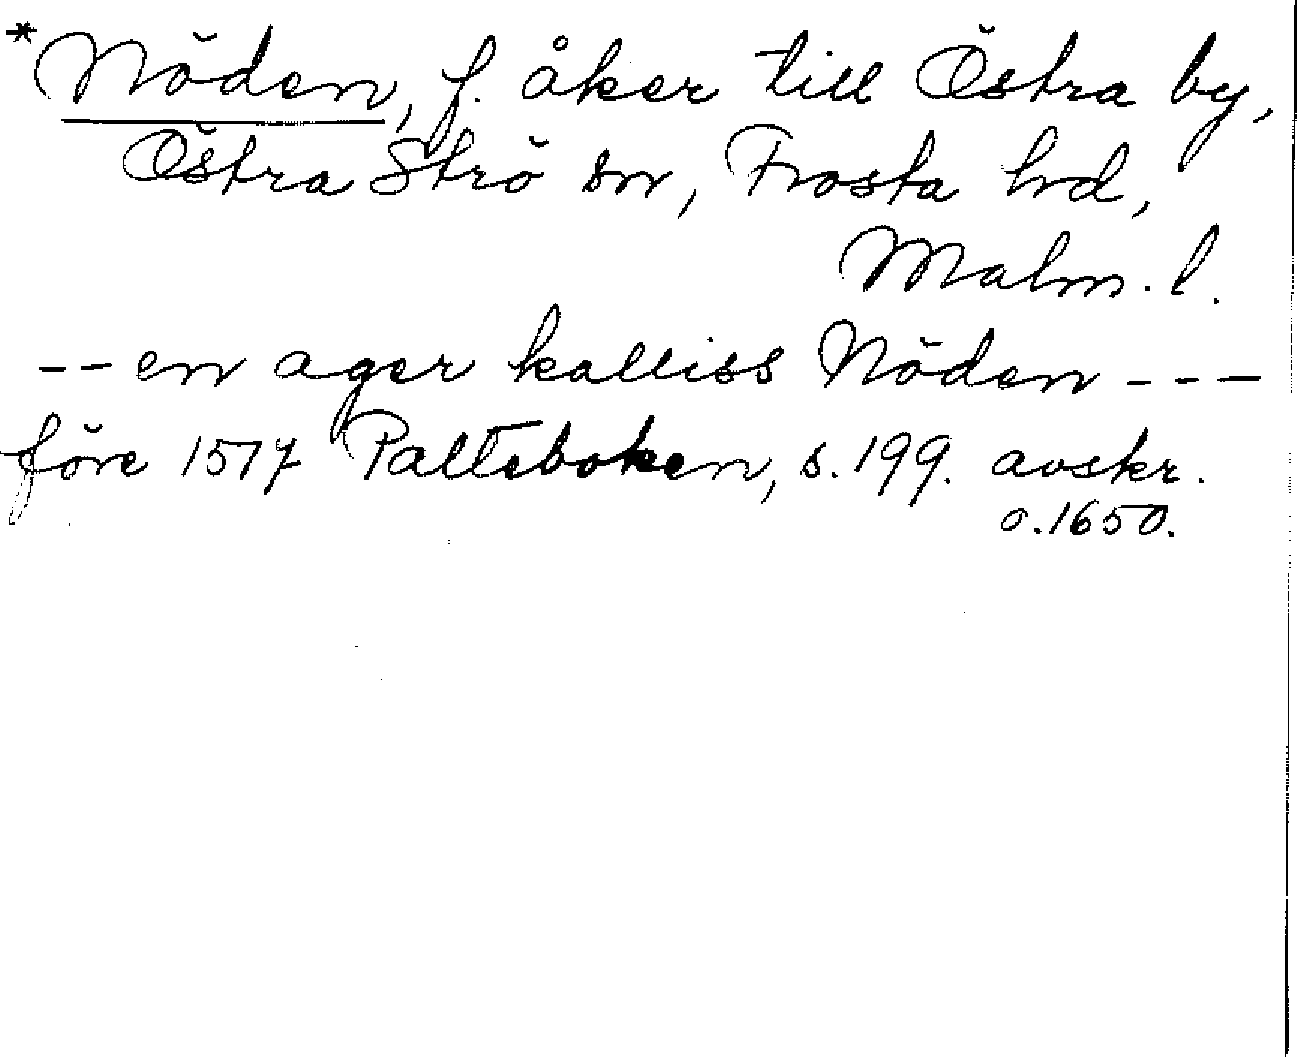 *Nöden, f. åker till Östra by,
Östra Strö sn, Frosta hd,
Malm. l.
--en ager kalliss Nöden ---
före 1517 Palteboken, s. 199. avskr.
o. 1650.